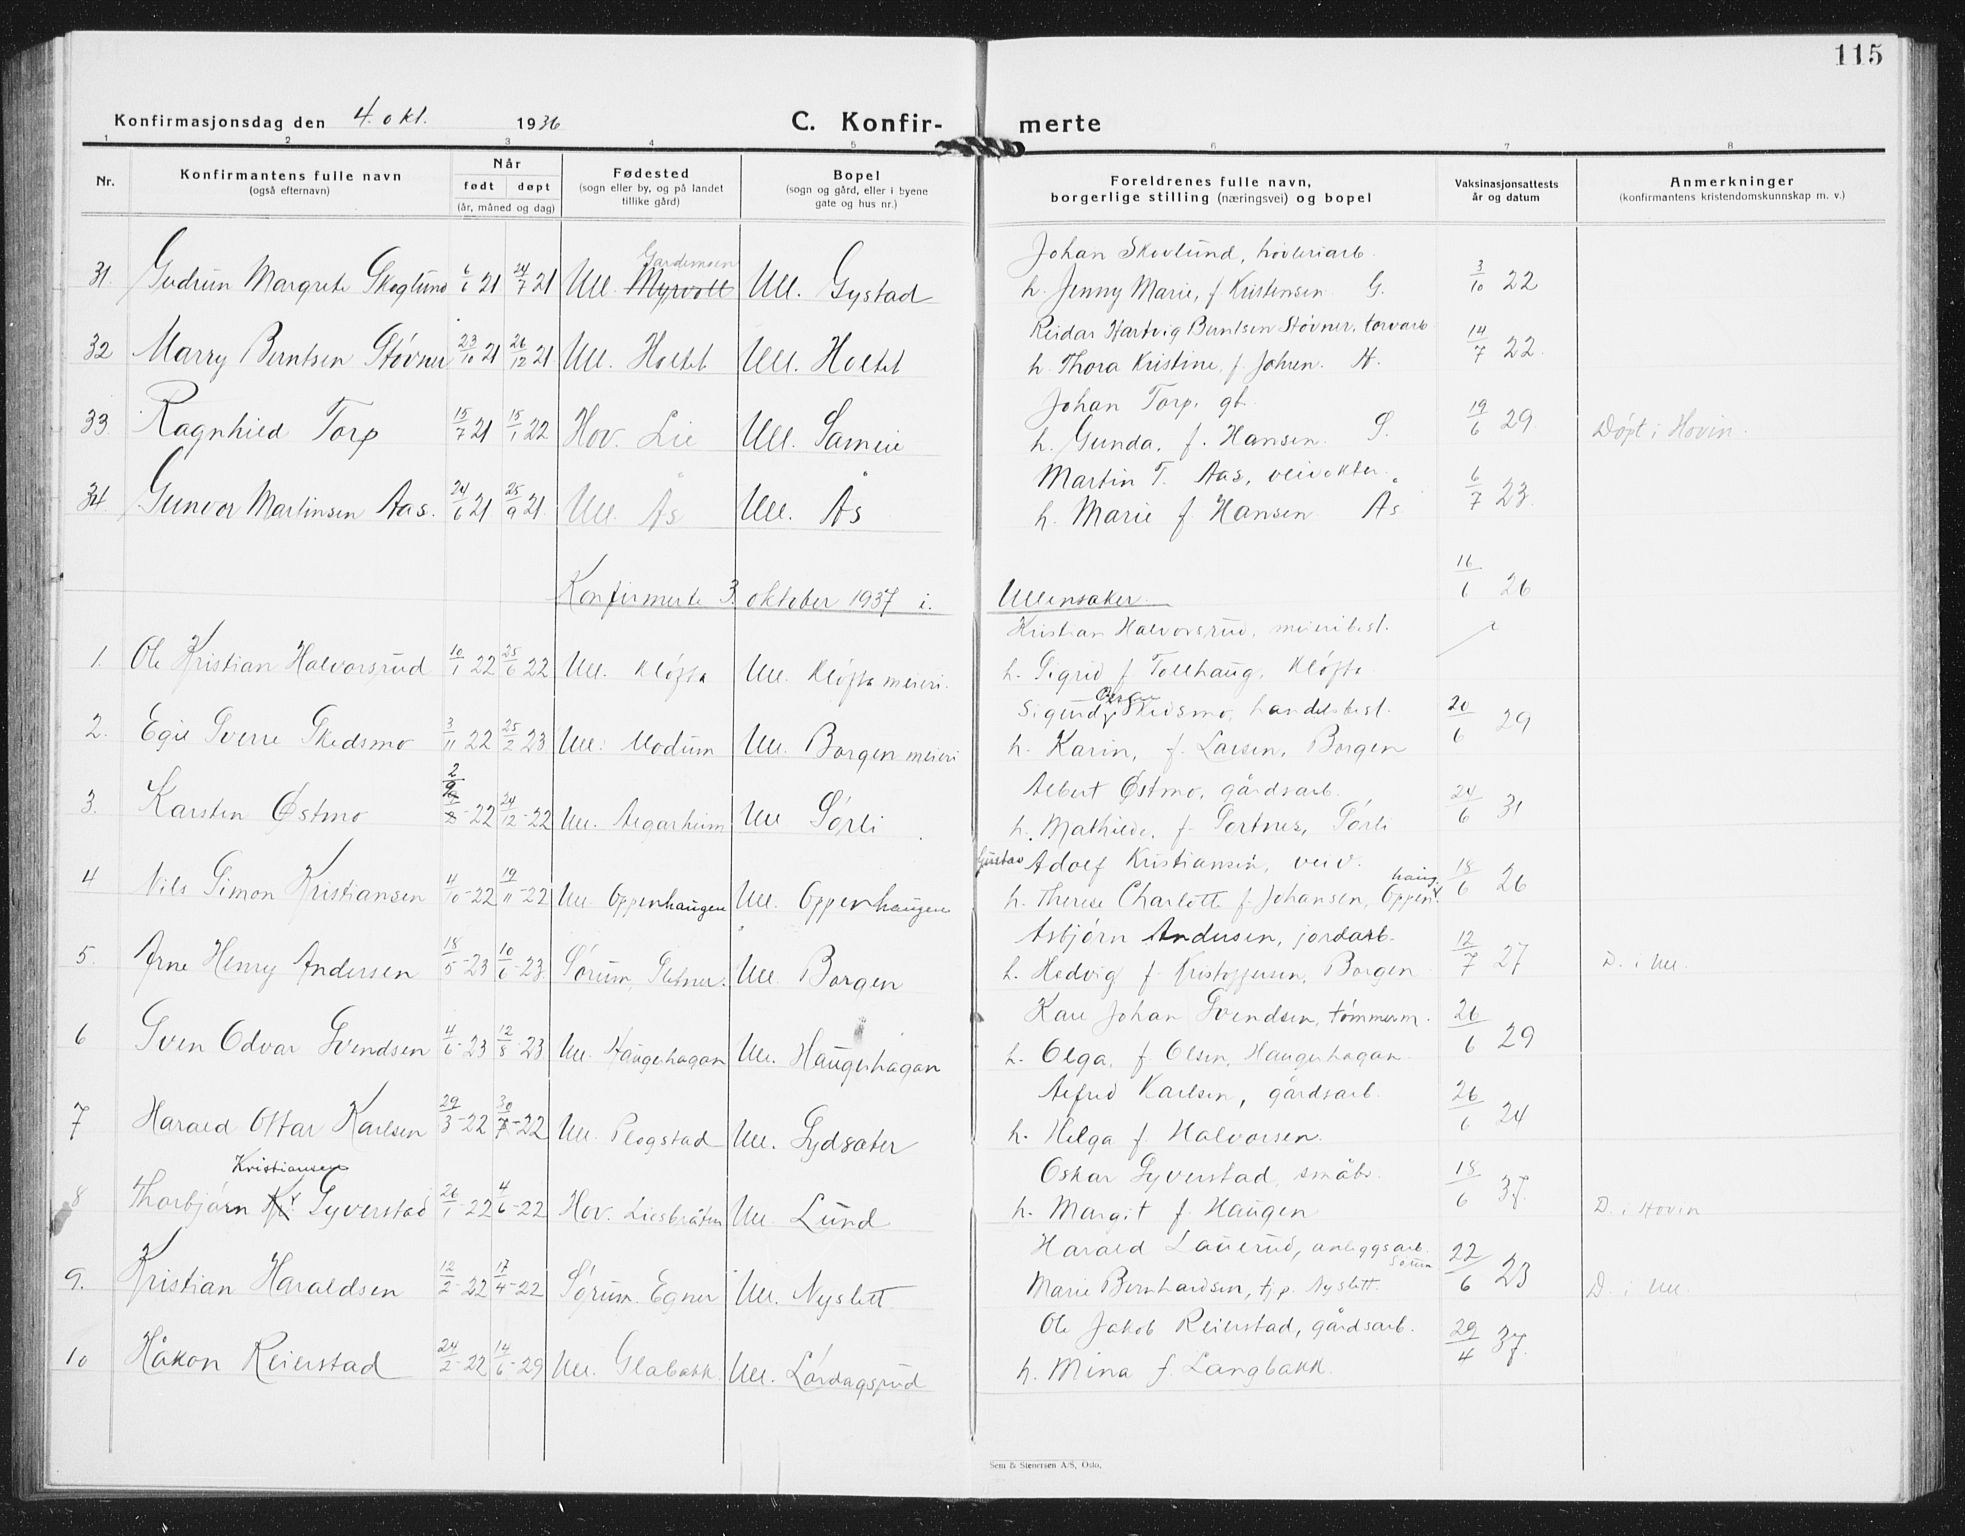 115
Konfirmasjonsdag den 4. okt. 1936
C. Konfir- merte
1 2 3 4 5 6 7 8
Nr.
Konfirmantens fulle navn
(også efternavn)
Når
født døpt
(år, måned og dag)
Fødested
(sogn eller by, og på landet
tillike gård)
Bopel
(sogn og gård, eller i byene
gate og hus nr.)
Foreldrenes fulle navn,
borgerlige stilling (næringsvei) og bopel
Vaksinasjonsattests
år og datum
Anmerkninger
(konfirmantens kristendomskunnskap m. v.)
Gardemoen
Johan Skoglund, høvleriarb.
31. Gudrun Margrete Skoglund 6/6 21 24/7 21 Ull. Myrvoll Ull. Gystad
h. Jenny Marie, f. Kristensen G. 3/10 22
Reidar Hartvig Berntsen Støvner, torvarb.
32 Marry Berntsen Støvner 23/10 21 26/12 21 Ull. Holtet Ull. Holtet
h. Thora Kristine, f. Johnsen. H. 14/7 22.
Johan Torp, gb.
33. Ragnhild Torp 15/7 21 15/1 22 Hov. Lie Ull. Sameie
h. Gunda, f. Hansen. S. 19/6 29 Døpt i Hovin.
Martin T. Aas, veivokter.
34. Gunvor Martinsen Aas. 24/6 21 25/9 21. Ull. Ås Ull. Ås
h. Marie f. Hansen Ås 6/7 23.
Konfirmerte 3. oktober 1937 i. Ullensaker. 16/6 26
Kristian Halvorsrud, meieribest.
1. Ole Kristian Halvorsrud 10/1 22 25/6 22 Ull. Kløfta Ull. Kløfta meieri.
h. Sigrid f. Tollhaug, Kløfta
Sigurd Skedsmo, handelsbest.
2. Egil Sverre Skedsmo 3/11 22 25/2 23 Ull. Modum Ull. Borgen meieri
h. Karin, f. Larsen, Borgen 20/6 29
Albert Østmo, gårdsarb.
3. Karsten Østmo 2/9 -22 24/12 -22 Ull. Algarheim Ull Sørli
h. Mathilde, f. Tortnes, Sørli 24/6 31
Gustav Adolf Kristiansen, veiv.
4 Nils Simon Kristiansen 4/10 -22 19/11 -22 Ull. Oppenhaugen Ull. Oppenhaugen
h. Therese Charlotte f. Johansen, Oppenhaug. 18/6 26
Asbjørn Andersen, jordarb.
5. Arne Henry Andersen 18/5 -23 10/6 -23 Sørum, Ull. Borgen
h. Hedvig f. Kristoffersen, Borgen 12/7 27 D. i Ull.
Karl Johan Svendsen, tømmerm.
6 Sven Odvar Svendsen 4/6 -23 12/8 -23 Ull. Haugerhagan Ull. Haugerhagan
h. Olga, f. Olsen, Haugerhagan 26/6 29
Alfred Karlsen, gårdsarb.
7 Harald Ottar Karlsen 29/3 -22 30/7 -22 Ull. Plogstad Ull. Lydsæter
h. Helga f. Halvorsen. 26/6 24
Kristiansen
Oskar Syverstad, småbr.
8 Thorbjørn Syverstad 26/1 -22 4/6 -22 Hov. Liesbråten Ull. Lund
h. Margit f. Haugen 18/6 37. D. i Hovin
Harald Lauerud, anleggsarb. Sørum
9. Kristian Haraldsen 12/2 -22 17/4 -22 Sørum. Egner Ull. Nyslett
Marie Bernhardsen, tj.p. Nyslett. 22/6 23 D. i Ull.
Ole Jakob Reierstad, gårdsarb.
10 Håkon Reierstad 24/2 -22 14/6 -29 Ull. Glabakk. Ull. Lørdagsrud
h. Mina f. Langbakk. 29/4 37.
Sem & Stenersen A/S, Oslo.